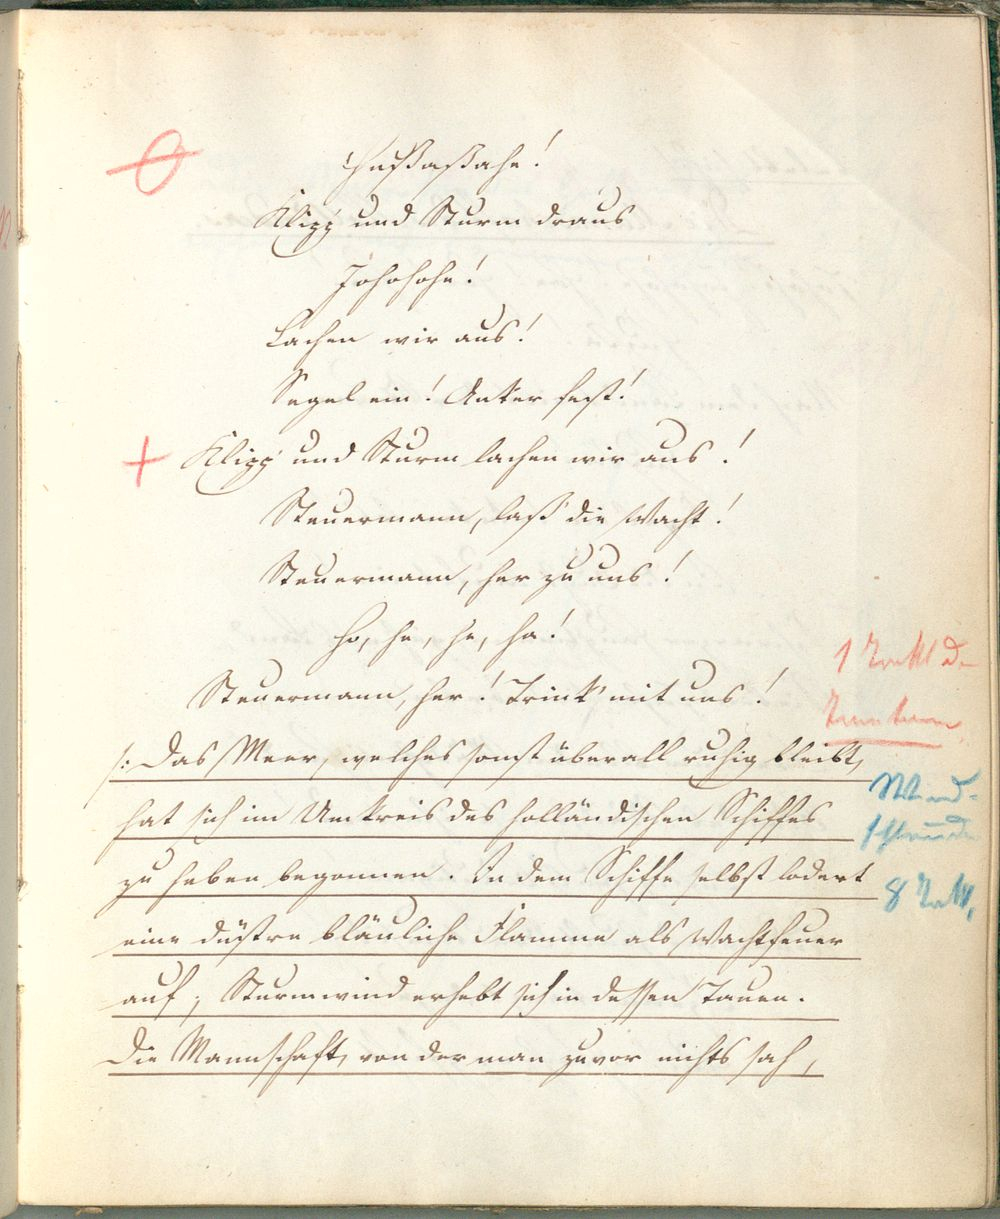 Hussassahe!
Klipp' und Sturm draus
Johohohe!
Lachen wir aus!
Segel ein! Anker fest!
Klipp' und Sturm lachen wir aus!
Steuermann, laß' die Wacht!
Steuermann, her zu uns!
Ho, he, he, ha!
Steuermann, her! Trink' mit uns!
/: Das Meer, welches sonst überall ruhig bleibt,
hat sich im Umkreis des holländischen Schiffes
zu heben begonnen. In dem Schiffe selbst lodert
eine düstre bläuliche Flamme als Wachtfeuer
auf; Sturmwind erhebt sich in dessen Tauen.
Die Mannschaft, von der man zuvor nichts sah,
1
Wind-
8